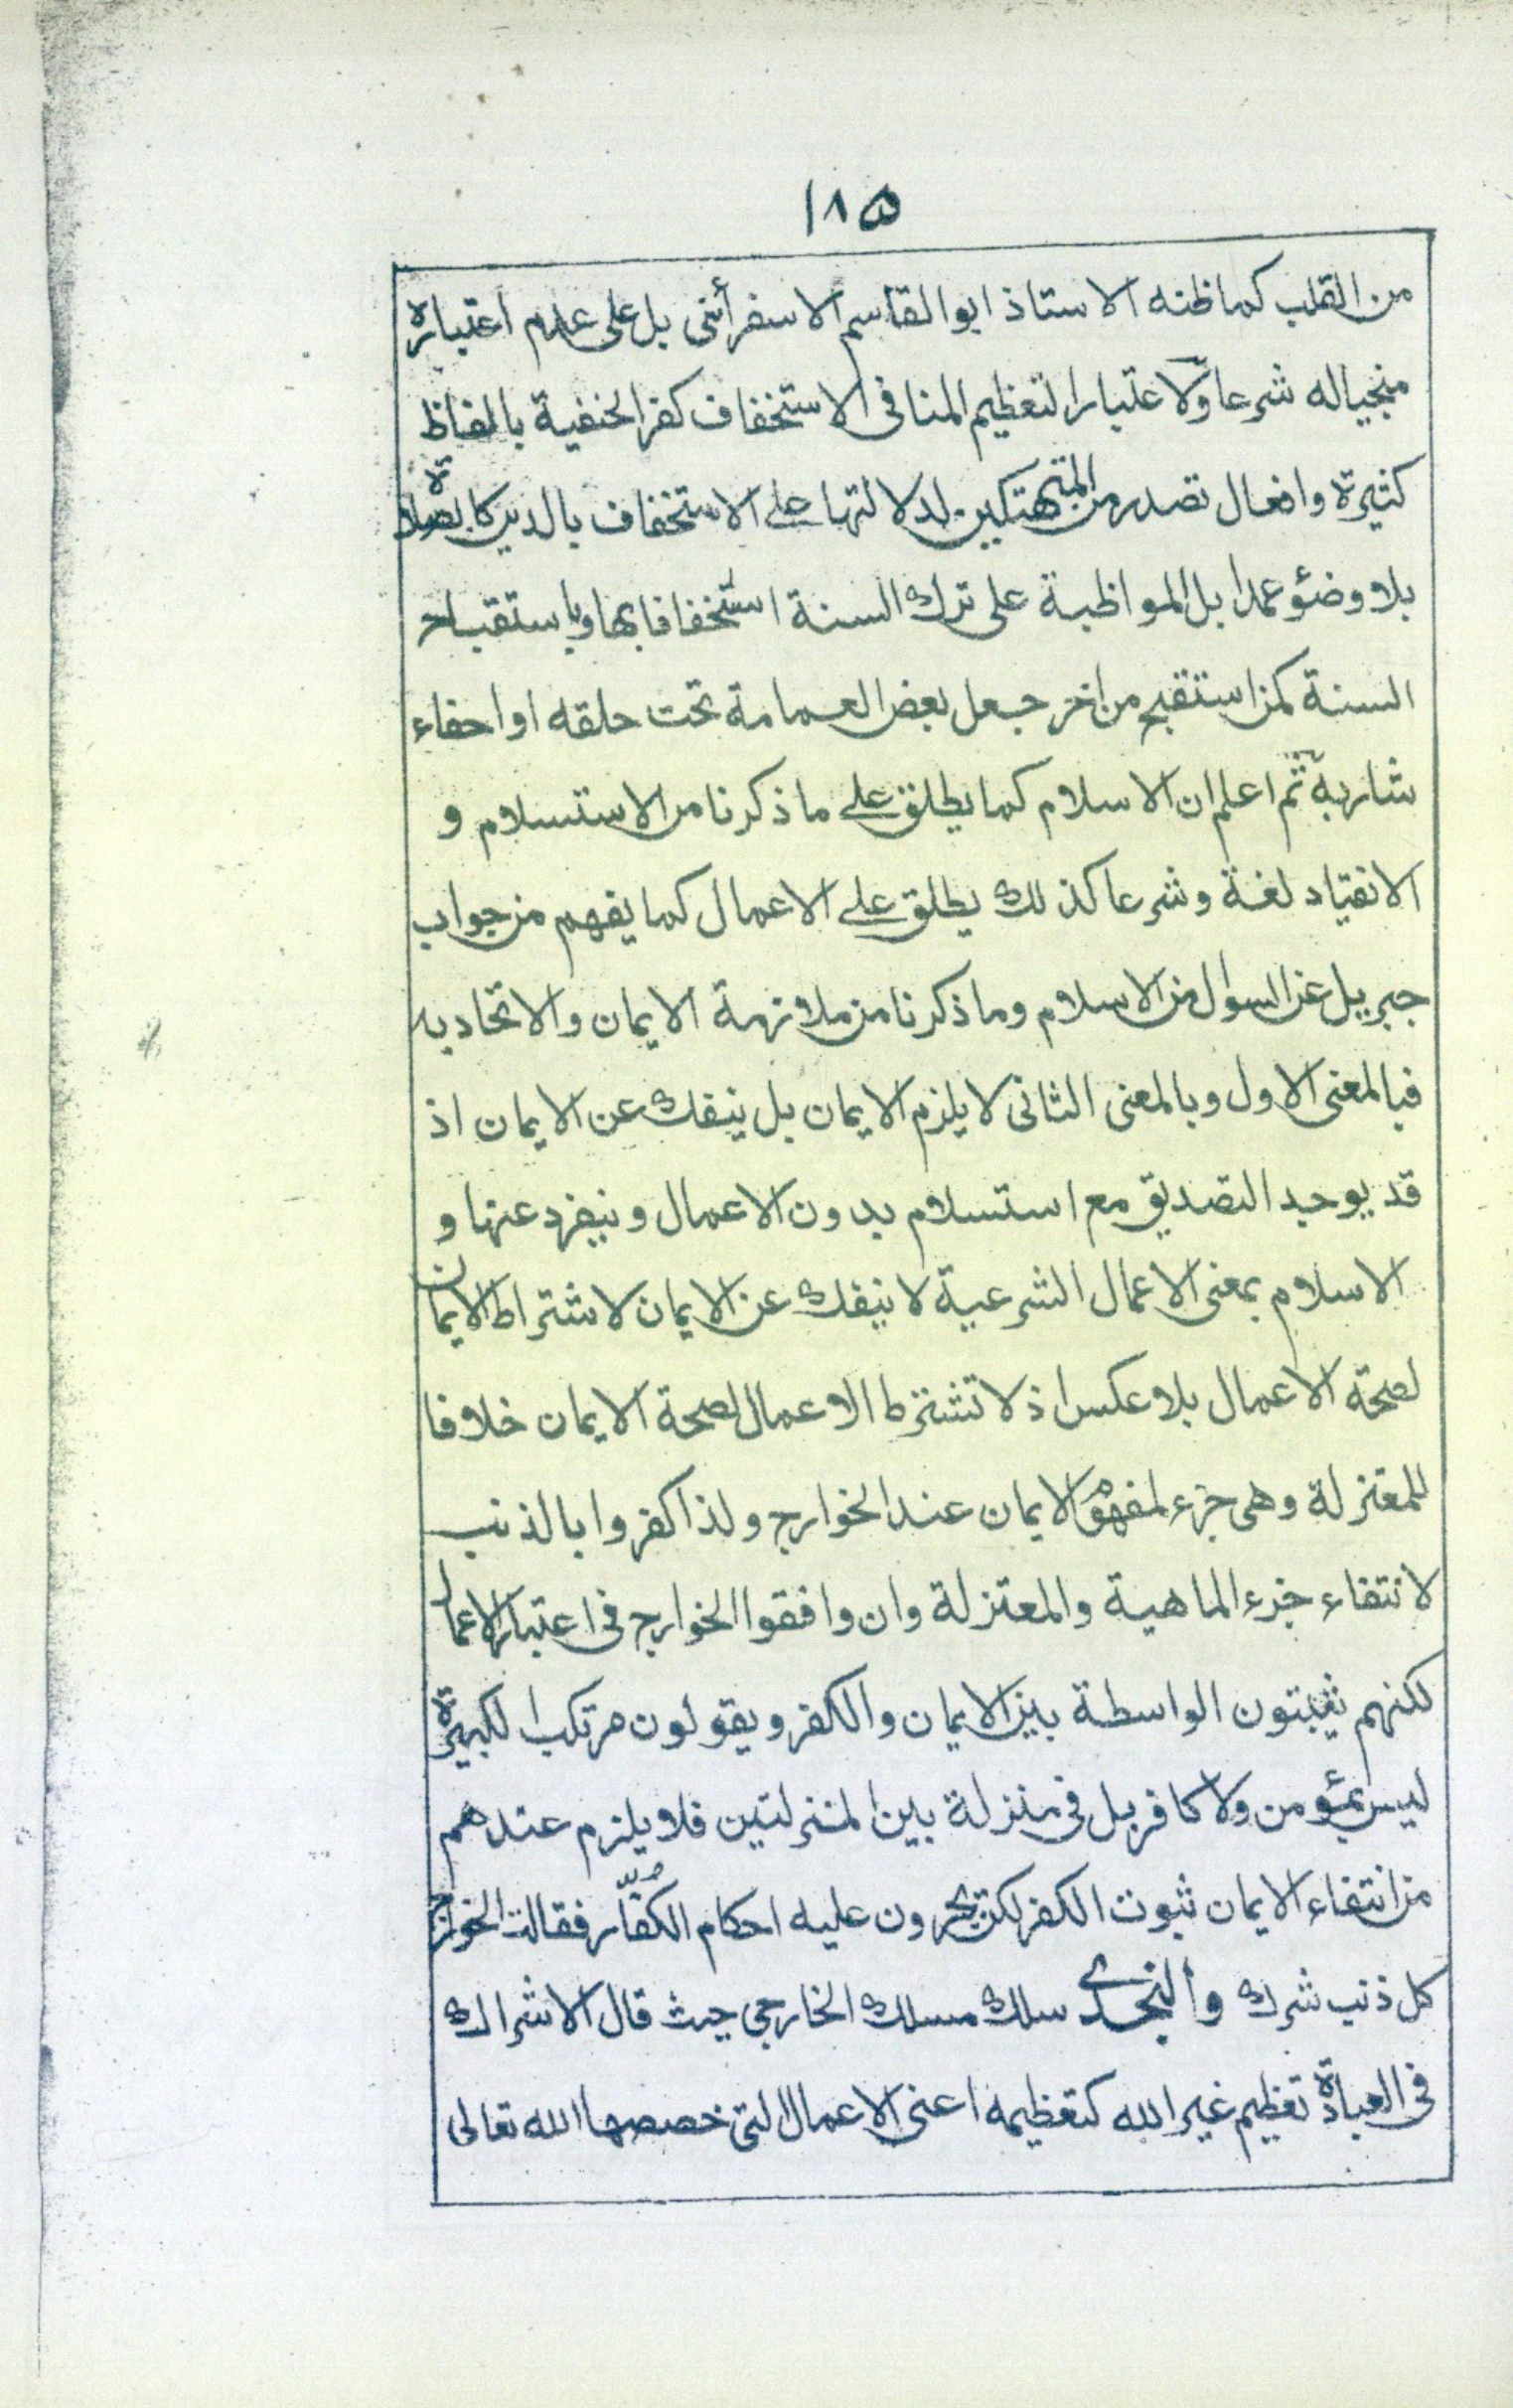 ١٨٥
من القلب كما ظنه الاستاذ ابوالقاسم الاسفرأئنى بل على عدم اعتباره
منجياله شرعا ولاعتبار التعظيم المنافى الاستخفاف كفر الحنفية بالفاظ
كثيرة وافعال تصدر من المتهتكين لدلالتها على الاستخفاف بالدين كالصلاة
بلا وضوء عمدا بل المواظبة على ترك السنة استخفافا بها وباستقباح
السنة كمن استقبح من اخر جعل بعض العمامة تحت حلقه او احفاء
شاربه ثم اعلم ان الاسلام كما يطلق على ما ذكرنا من الاستسلام و
الانقياد لغة وشرعا كذلك يطلق على الاعمال كما يفهم من جواب
جبريل عن السوال من الاسلام وما ذكرنا من ملازمة الايمان والاتحاد به
فبالمعنى الاول وبالمعنى الثانى لا يلزم الايمان بل ينفك عن الايمان اذ
قد يوجد التصديق مع استسلام بدون الاعمال وينفرد عنها و
الاسلام بمعنى الاعمال الشرعية لا ينفك عن الايمان لاشتراط الايمان
لصحة الاعمال بلا عكس اذ لا تشترط الاعمال لصحة الايمان خلافا
للمعتزلة وهى جزء لمفهوم الايمان عند الخوارج ولذا كفروا بالذنب
لانتفاء جزء الماهية والمعتزلة وان وافقوا الخوارج فى اعتبار الاعمال
لكنهم يثبتون الواسطة بين الايمان والكفر ويقولون مرتكب الكبيرة
ليس بمؤمن ولا كافر بل فى منزلة بين المنزلتين فلا يلزم عندهم
من انتفاء الايمان ثبوت الكفر لكن يجرون عليه احكام الكُفّار فقالت الخوارج
كل ذنب شرك والنجدى سلك مسلك الخارجى حيث قال الاشراك
فى العبادة تعظيم غير الله كتعظيمه اعنى الاعمال التى خصصها الله تعالى